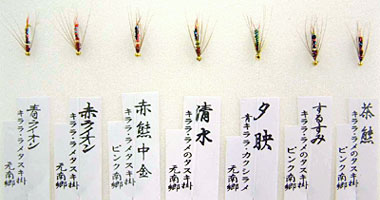 茶熊
キララ・ラメのタスキ掛
ピンク 元南郷
するすみ
キララ・ラメのタスキ掛
元南郷
夕映
青キララ・カラシラメ
元南郷
清水
キララ・ラメのタスキ掛
元南郷
赤熊中金
キララ・ラメタスキ掛
ピンク 元南郷
赤ライオン
キララ・ラメタスキ掛
元南郷
青ライオン
キララ・ラメタスキ掛
元南郷